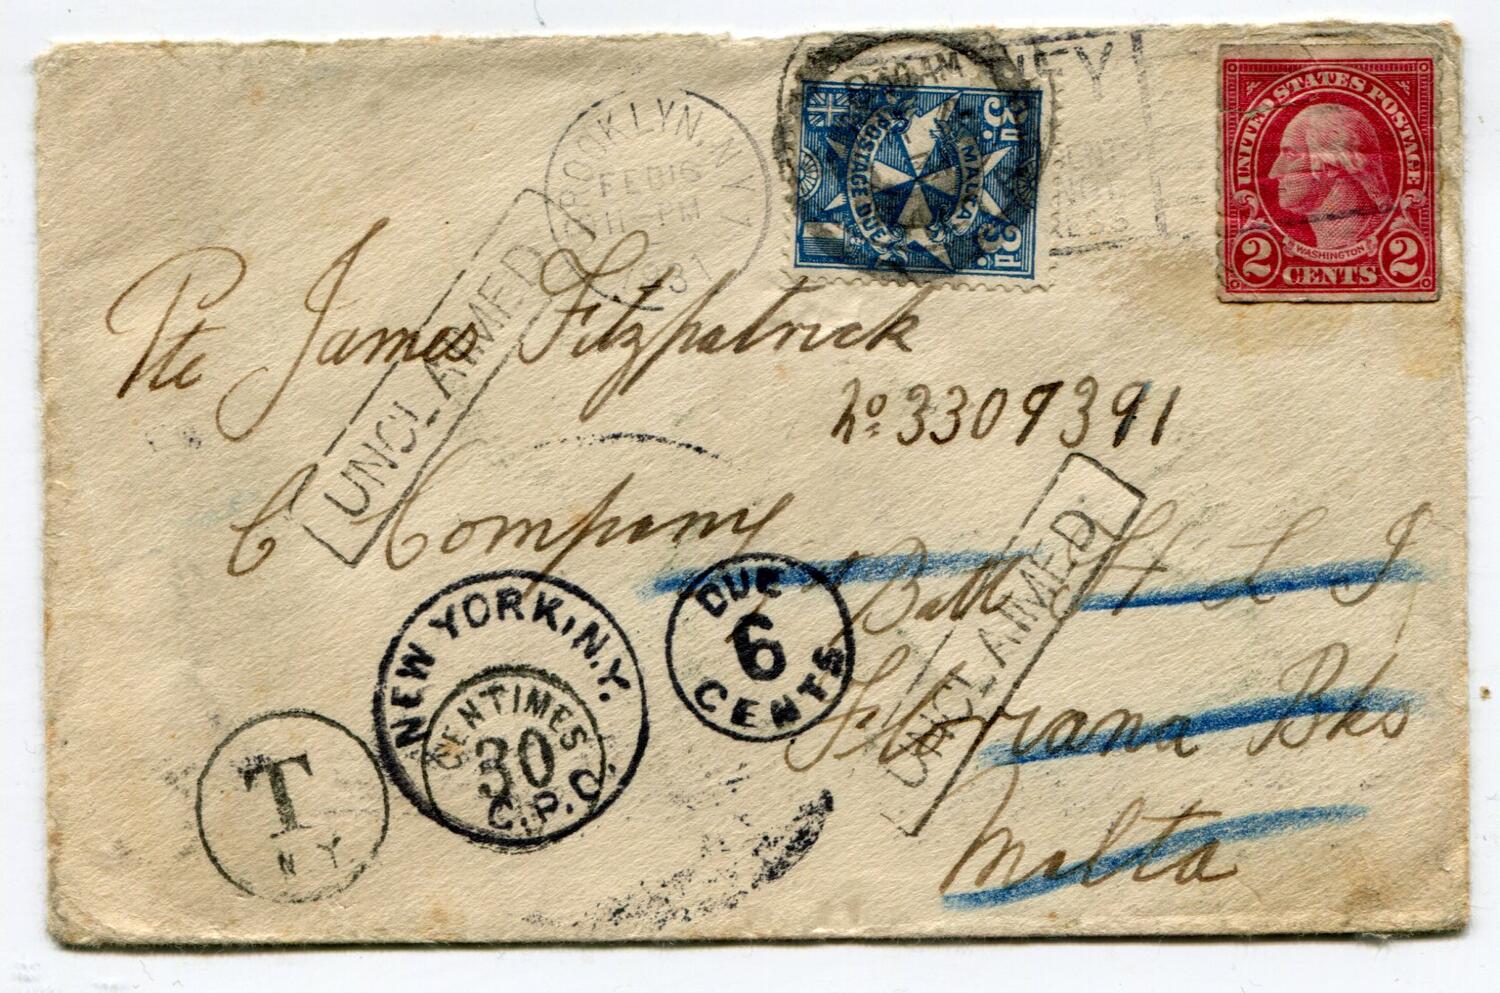 BROOKLYN N.Y.
FEB 16
11 PM
1931
00 AM
3d
MALTA
POSTAGE DUE
3d
UNITED STATES POSTAGE
WASHINGTON
2 CENTS 2
UNCLAIMED.
Pte James Fitzpatrick
No 3309391
C Company
Batt H L I
UNCLAIMED.
Floriana Bks
Malta
DUE
6
CENTS
NEW YORK, N.Y.
CENTIMES
30
C.P.O.
T
N Y